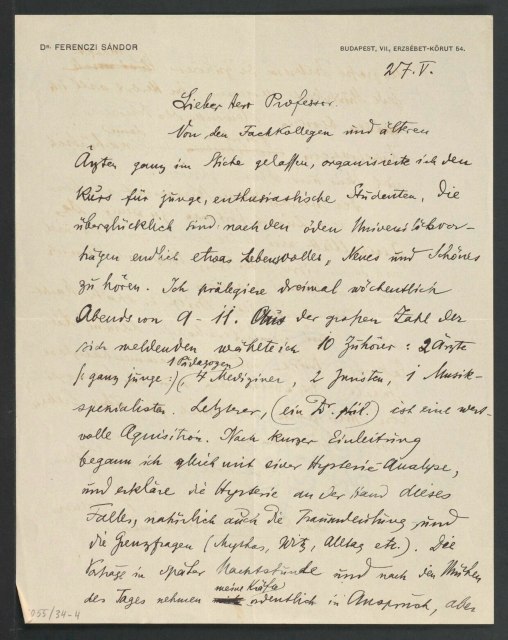 Dr. FERENCZI SÁNDOR
BUDAPEST, VII., ERZSÉBET-KÖRUT 54.
27. V.
Lieber Herr Professor.
Von den Fachkollegen und älteren
Ärzten ganz im Stiche gelassen, organisierte ich den
Kurs für junge, enthusiastische Studenten, die
überglücklich sind nach den öden Universitätsvor-
trägen endlich etwas Lebensvolles, Neues und Schönes
zu hören. Ich prälegiere dreimal wöchentlich
Abends von 9 - 11. Aus der großen Zahl der
sich meldenden wählte ich 10 Zuhörer: 2 Ärzte
1 Pädagogen
/: ganz junge :/ 4 Mediziner, 2 Juristen, 1 Musik-
spezialisten. Letzterer, (ein Dr. phil.) ist eine wert-
volle Aquisition. Nach kurzer Einleitung
begann ich gleich mit einer Hysterie-Analyse,
und erkläre die Hysterie an der Hand dieses
Falles, natürlich auch die Traumdeutung und
die Grenzfragen (Mythos, Witz, Alltag etc.). Die
Vorträge in später Nachtstunde und nach den Mühen
meine Kräfte
des Tages nehmen ordentlich in Anspruch, aber
055/34-4